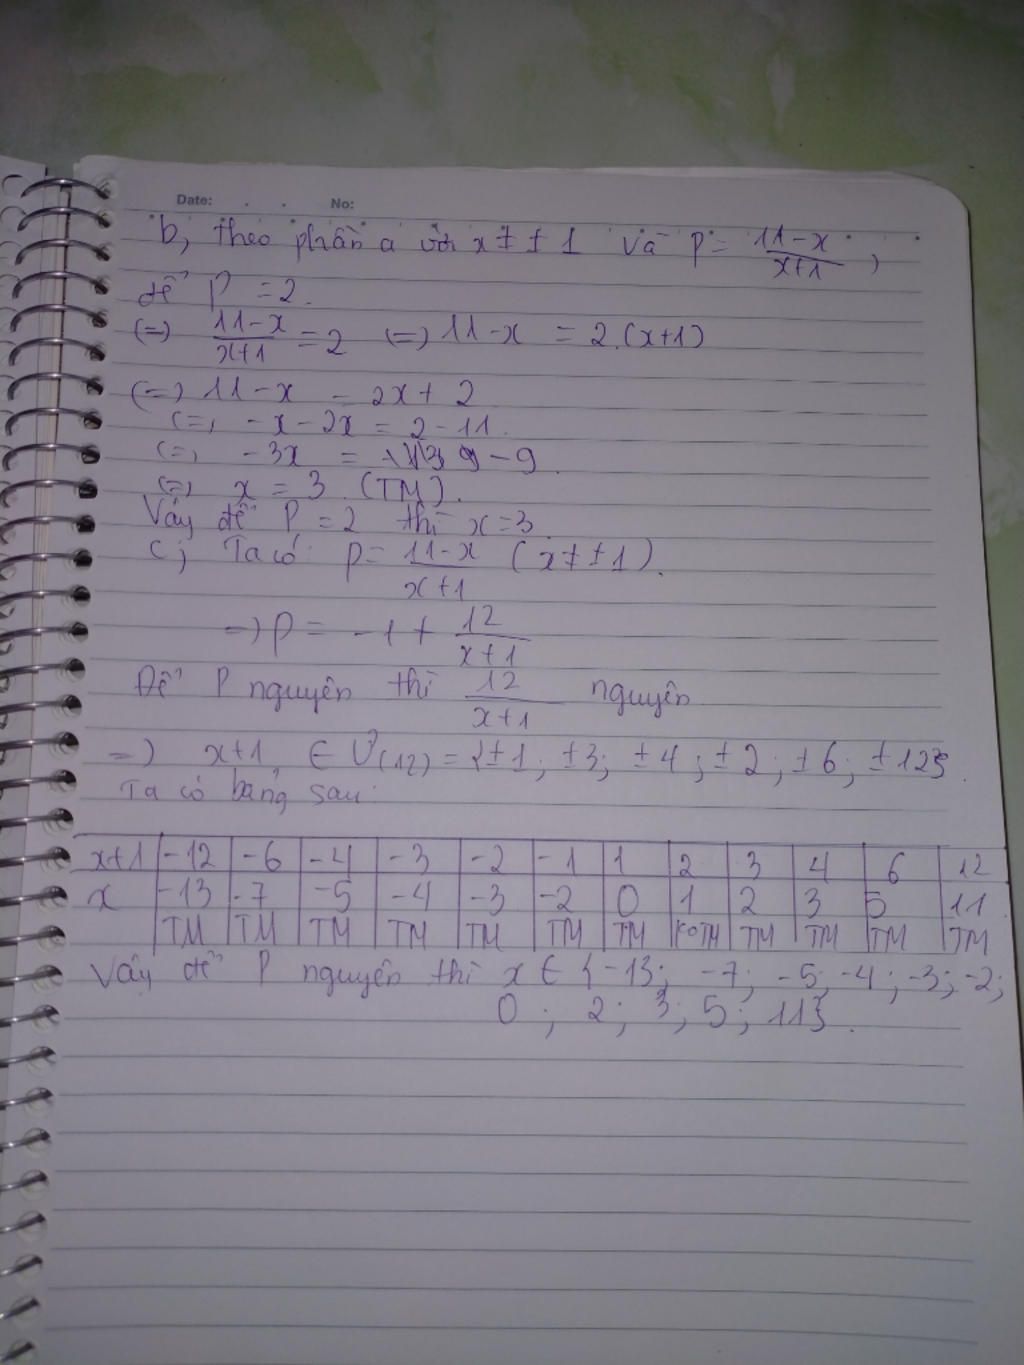 Date: . . No:
b, theo phần a với x ≠ ± 1 và P = \frac{11-x}{x+1},
để P = 2.
(=) \frac{11-x}{x+1} = 2 (=) 11-x = 2.(x+1)
(=) 11-x = 2x + 2
(=) -x-2x = 2-11.
(=) -3x = -9.
(=) x = 3 (TM).
Vậy để P = 2 thì x=3
c, Ta có: P = \frac{11-x}{x+1} (x ≠ ± 1).
=) P = -1 + \frac{12}{x+1}
Để P nguyên thì \frac{12}{x+1} nguyên
=) x+1 ∈ Ư(12) = {±1; ±3; ±4; ±2; ±6; ±12}.
Ta có bảng sau:
x+1 | -12 | -6 | -4 | -3 | -2 | -1 | 1 | 2 | 3 | 4 | 6 | 12
x | -13 | -7 | -5 | -4 | -3 | -2 | 0 | 1 | 2 | 3 | 5 | 11
TM | TM | TM | TM | TM | TM | TM | KoTM | TM | TM | TM | TM
Vậy để P nguyên thì x ∈ {-13; -7; -5; -4; -3; -2;
0; 2; 3; 5; 11}.